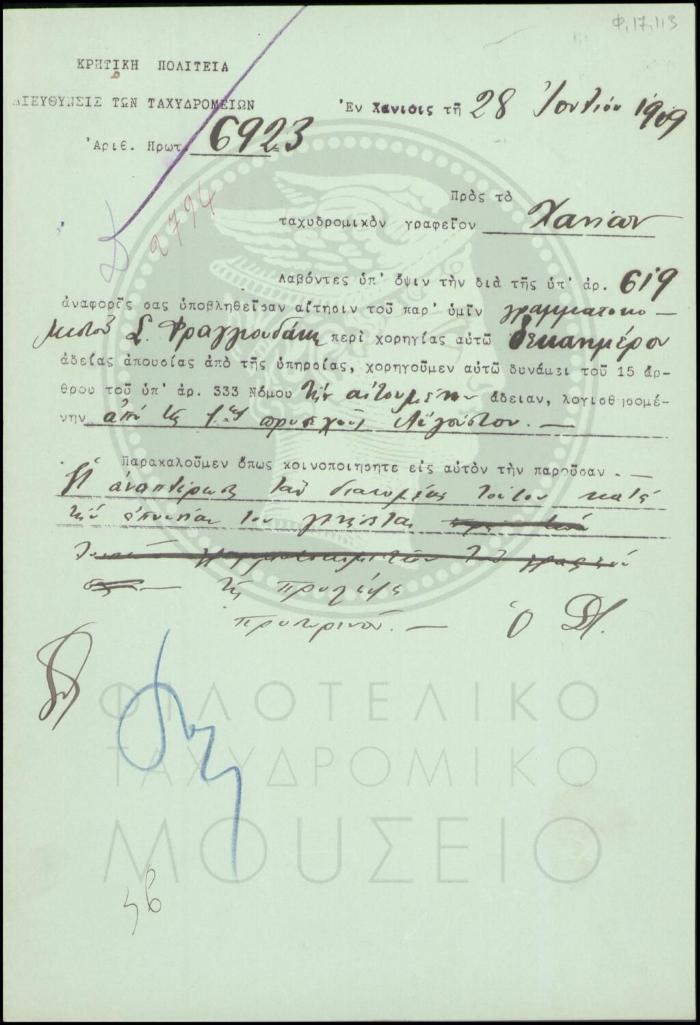 Φ.17.113
ΚΡΗΤΙΚΗ ΠΟΛΙΤΕΙΑ
ΔΙΕΥΘΥΝΣΙΣ ΤΩΝ ΤΑΧΥΔΡΟΜΕΙΩΝ
Ἐν Χανίοις τῇ 28 Ἰουλίου 1909
Ἀριθ. Πρωτ. 6923
2794
Πρὸς τὸ
ταχυδρομικὸν γραφεῖον Χανίων
Λαβόντες ὑπ' ὄψιν τὴν διὰ τῆς ὑπ' ἀρ. 619
ἀναφορᾶς σας ὑποβληθεῖσαν αἴτησιν τοῦ παρ' ὑμῖν γραμματοκο-
μιστοῦ Σ. Φραγκουδάκη περὶ χορηγίας αὐτῷ δεκαημέρου
ἀδείας ἀπουσίας ἀπὸ τῆς ὑπηρσίας, χορηγοῦμεν αὐτῷ δυνάμει τοῦ 15 ἄρ-
θρου τοῦ ὑπ' ἀρ. 333 Νόμου τὴν αἰτουμένην ἄδειαν, λογισθησομέ-
νην ἀπὸ τῆς 1ης προσεχοῦς Αὐγούστου. —
Παρακαλοῦμεν ὅπως κοινοποιήσητε εἰς αὐτὸν τὴν παροῦσαν. —
Ἡ ἀναπλήρωσις τοῦ διανομέως τούτου κατὰ
τὴν ἀπουσίαν του γενήσεται
τῆς
προσωρινοῦ. — Ὁ Δ.
ΦΙΛΟΤΕΛΙΚΟ
ΤΑΧΥΔΡΟΜΙΚΟ
ΜΟΥΣΕΙΟ